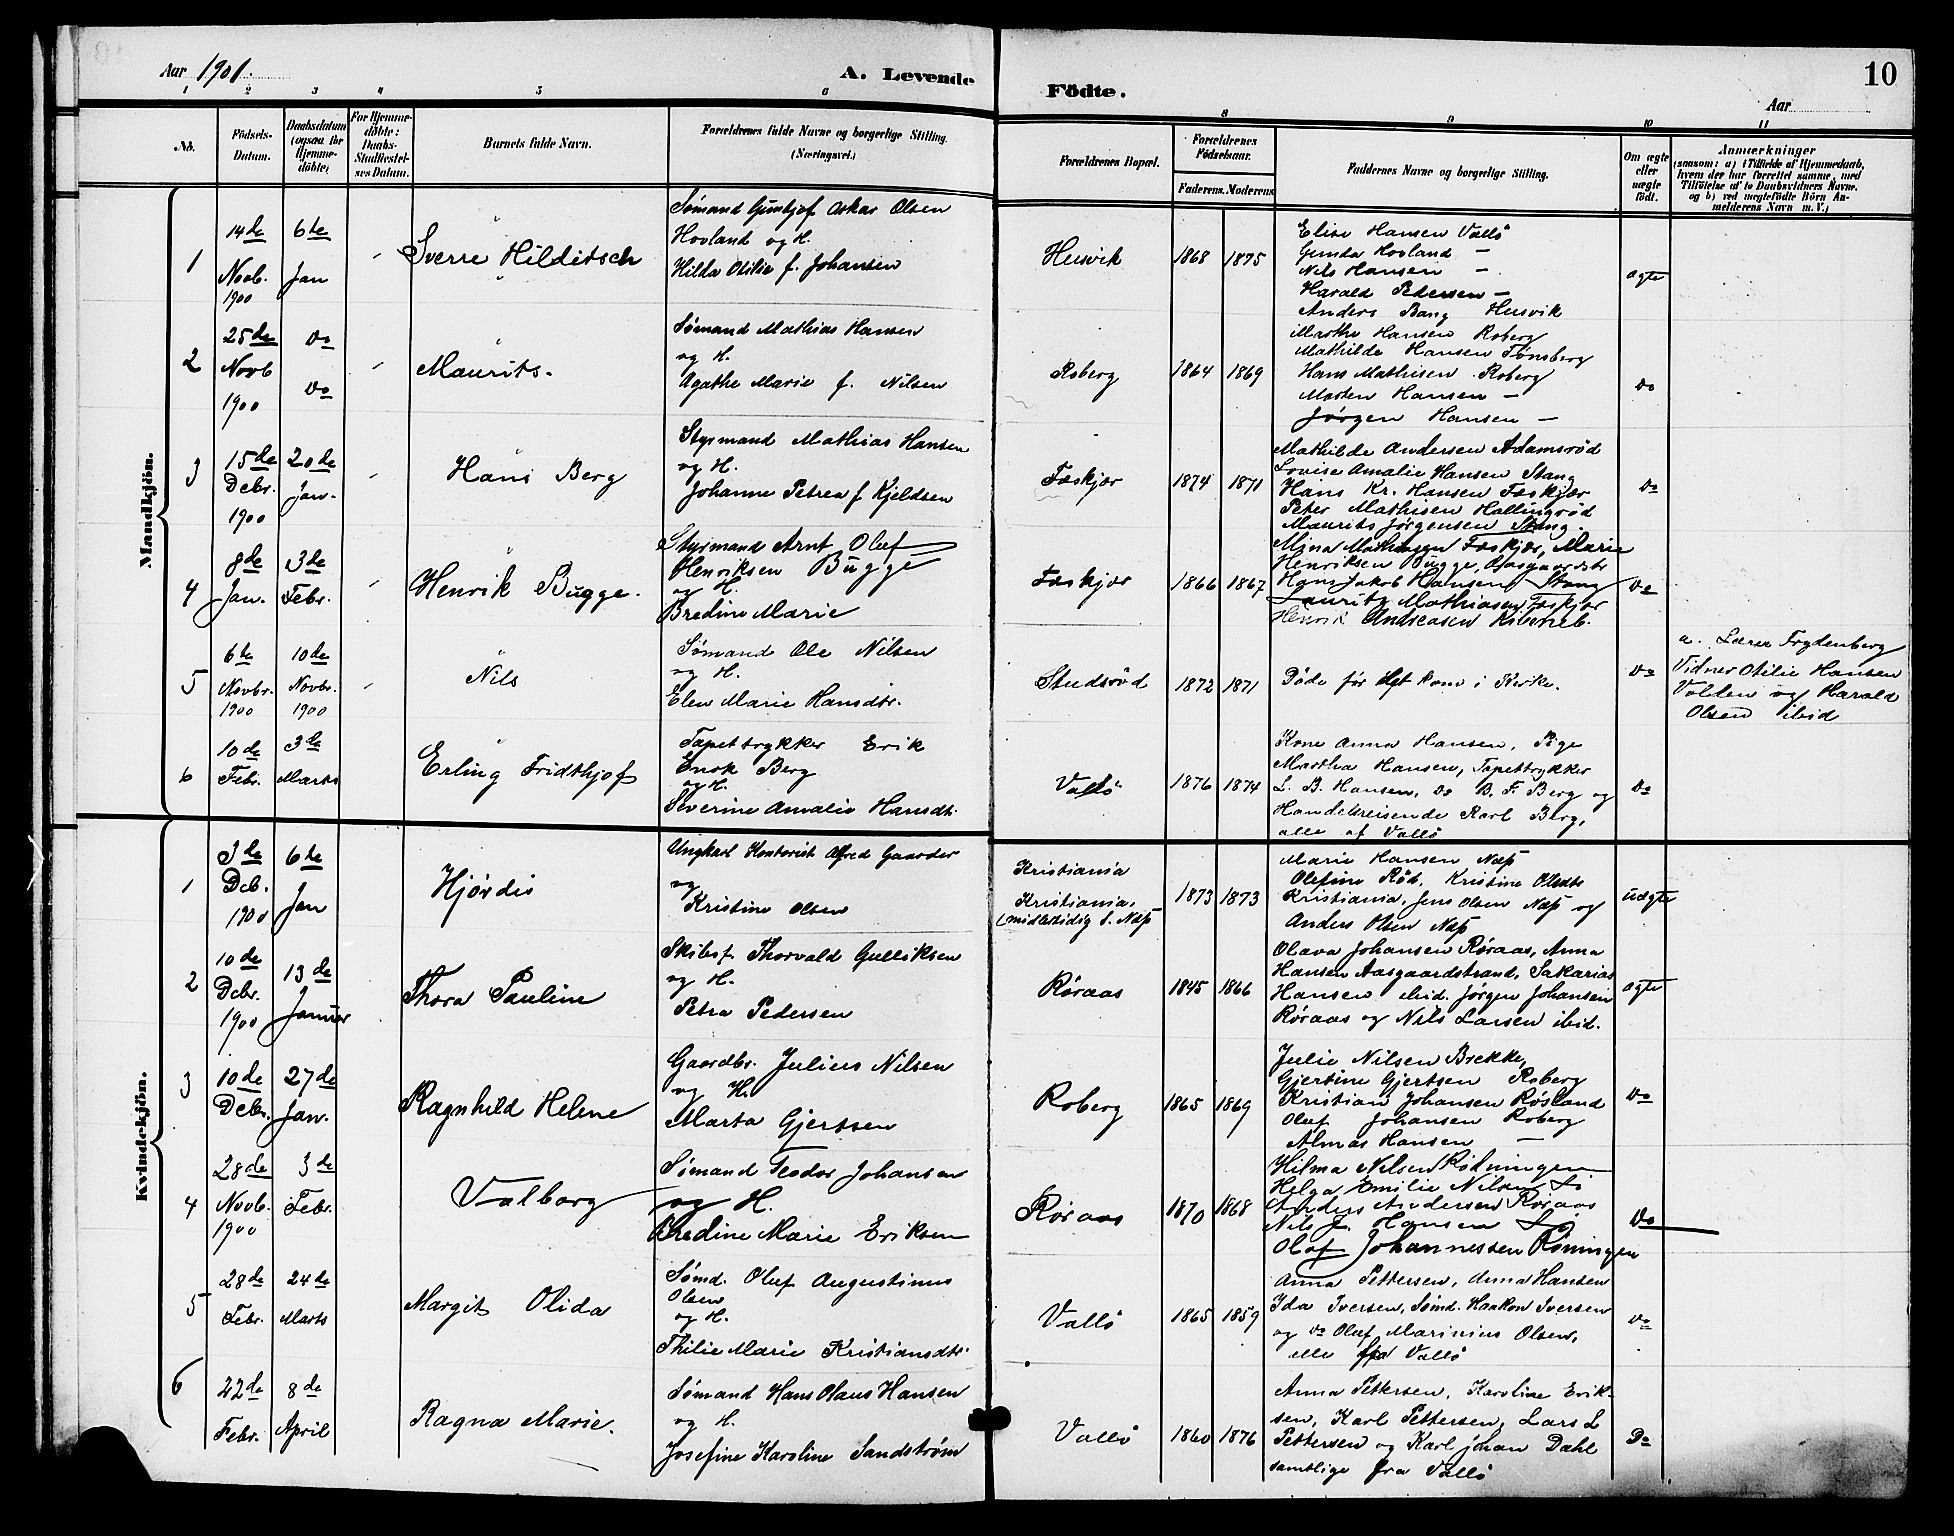 Aar 1901.
A. Levende
Födte.
10
Aar
1 2 3 4 5 6 8 9 10 11
No.
Födsels-Datum.
Daabsdatum (ogsaa for Hjemme-döbte)
For Hjemme-döbte: Daabs-Stadfæstel-ses Datum.
Barnets fulde Navn.
Forældrenes fulde Navne og borgerlige Stilling. (Næringsvei.)
Forældrenes Bopæl.
Forældrenes Födselsaar.
Faderens. Moderens.
Faddernes Navne og borgerlige Stilling.
Om ægte eller uægte födt.
Anmærkninger
(saasom: a) i Tilfælde af Hjemmedaab, hvem der har forrettet samme, med Tilföielse af to Daabsvidners Navne. og b) ved uægtefödte Börn An-melderens Navn m. V.)
Mandkjön.
1
14de Novb. 1900
6te Jan
Sverre Hilditsch
Sømand Guntjof Oskar Olsen
Hovland og H.
Hilda Otilie f. Johansen
Husvik
1868 1875
Elise Hansen Vallö
Gunda Hovland —
Nils Hansen —
Harald Pedersen —
Anders Bang Husvik
ægte
2
25de Novb 1900
do do
Maurits.
Sømand Mathias Hansen
og H.
Agathe Marie f. Nilsen
Roberg
1864 1869
Marthe Hansen Roberg
Mathilde Hansen Tønsberg
Hans Mathisen Roberg
Morten Hansen —
Jørgen Hansen —
do
3
15de Debr. 1900
20de Jan.
Hans Berg
Styrmand Mathias Hansen
og H.
Johanne Petrea f Kjeldsen
Fæskjær
1874 1871
Mathilde Andersen Adamsrød
Lovise Amalie Hansen Stang
Hans Kr. Hansen Fæskjær
Peter Mathisen Hallingrød
Maurits Jørgensen Stang.
do
4
8de Jan.
3de Febr.
Henrik Bugge.
Styrmand Arnt Oluf
Henriksen Bugge
og H.
Bredine Marie
Fæskjær
1866 1867
Mina Mathiasen Fæskjær, Marie
Henriksen Bugge, Aasgaardstr
Hans Jakob Hansen Stang
Lauritz Mathiasen Fæskjær
Henrik Andreasen
do
5
6te Novbr. 1900
10de Novbr. 1900
Nils
Sømand Ole Nilsen
og H.
Elen Marie Hansdtr.
Studsrød
1872 1871
Døde før det kom i Kirke.
do
a. Lærer Frydenberg
Vidner Otilie Hansen
Volden og Harald
Olsen ibid
6
10de Febr.
3de Marts
Erling Fridthjof
Tapettrykker Erik
Enok Berg
og H.
Severine Amalie Hansdt.
Vallö
1876 1874
Kone Anna Hansen, Pige
Martha Hansen, Tapettrykker
L. B. Hansen, do B. F. Berg og
Handelsreisende Karl Berg,
alle af Vallö
do
Kvindekjön.
1
3de Deb. 1900
6te Jan
Hjørdis
Ungkarl Kontorist Alfred Gaarder
og
Kristine Olsen
Kristiania
Kristiania,
(midlertidig S. Næs
1873 1873
Marie Hansen Næs
Olefine Röd, Kristine Olsdtr
Kristiania, Jens Olsen Næs og
Anders Olsen Næs
uægte
2
10de Debr. 1900
13de Januar
Thora Pauline
Skibsf. Thorvald Gulliksen
og H.
Petra Pedersen
Røraas
1845 1866
Olava Johansen Røraas, Anna
Hansen Aasgaardstrand, Sakarias
Hansen ibid. Jørgen Johansen
Røraas og Nils Larsen ibid.
ægte
3
10de Debr.
27de Jan.
Ragnhild Helene
Gaardbr. Julius Nilsen
og H.
Marta Gjertsen
Roberg
1865 1869
Julie Nilsen Brekke,
Gjertine Gjertsen Roberg
Kristian Johansen Røsland
Oluf Johansen Roberg
Almas Hansen —
do
4
28de Novb. 1900
3de Febr.
Valborg
Sømand Teodor Johansen
og H.
Bredine Marie Eriksen
Røraas
1870 1868
Hilma Nilsen Rødningen
Helga Emilie Nilsen Lø
Anders Andersen Røraas
Nils J. Hansen Lø
Olaf Johannessen Røningen
do
5
28de Febr.
24de Marts
Margit Olida
Sømd. Oluf Augustinus
Olsen
og H.
Thilie Marie Kristiansdtr.
Vallö
1865 1859
Anna Pettersen, Anna Hansen
Ida Iversen, Sømd. Haakon Iversen
og do Olaf Marinius Olsen,
alle fra Vallö
do
6
22de Febr.
8de April
Ragna Marie.
Sømand Hans Olaus Hansen
og H.
Josefine Karoline Sandstrøm
Vallö
1860 1876
Anna Pettersen, Karoline Erik-
sen, Karl Pettersen, Lars L
Pettersen og Karl Johan Dahl
samtlige fra Vallö
Do